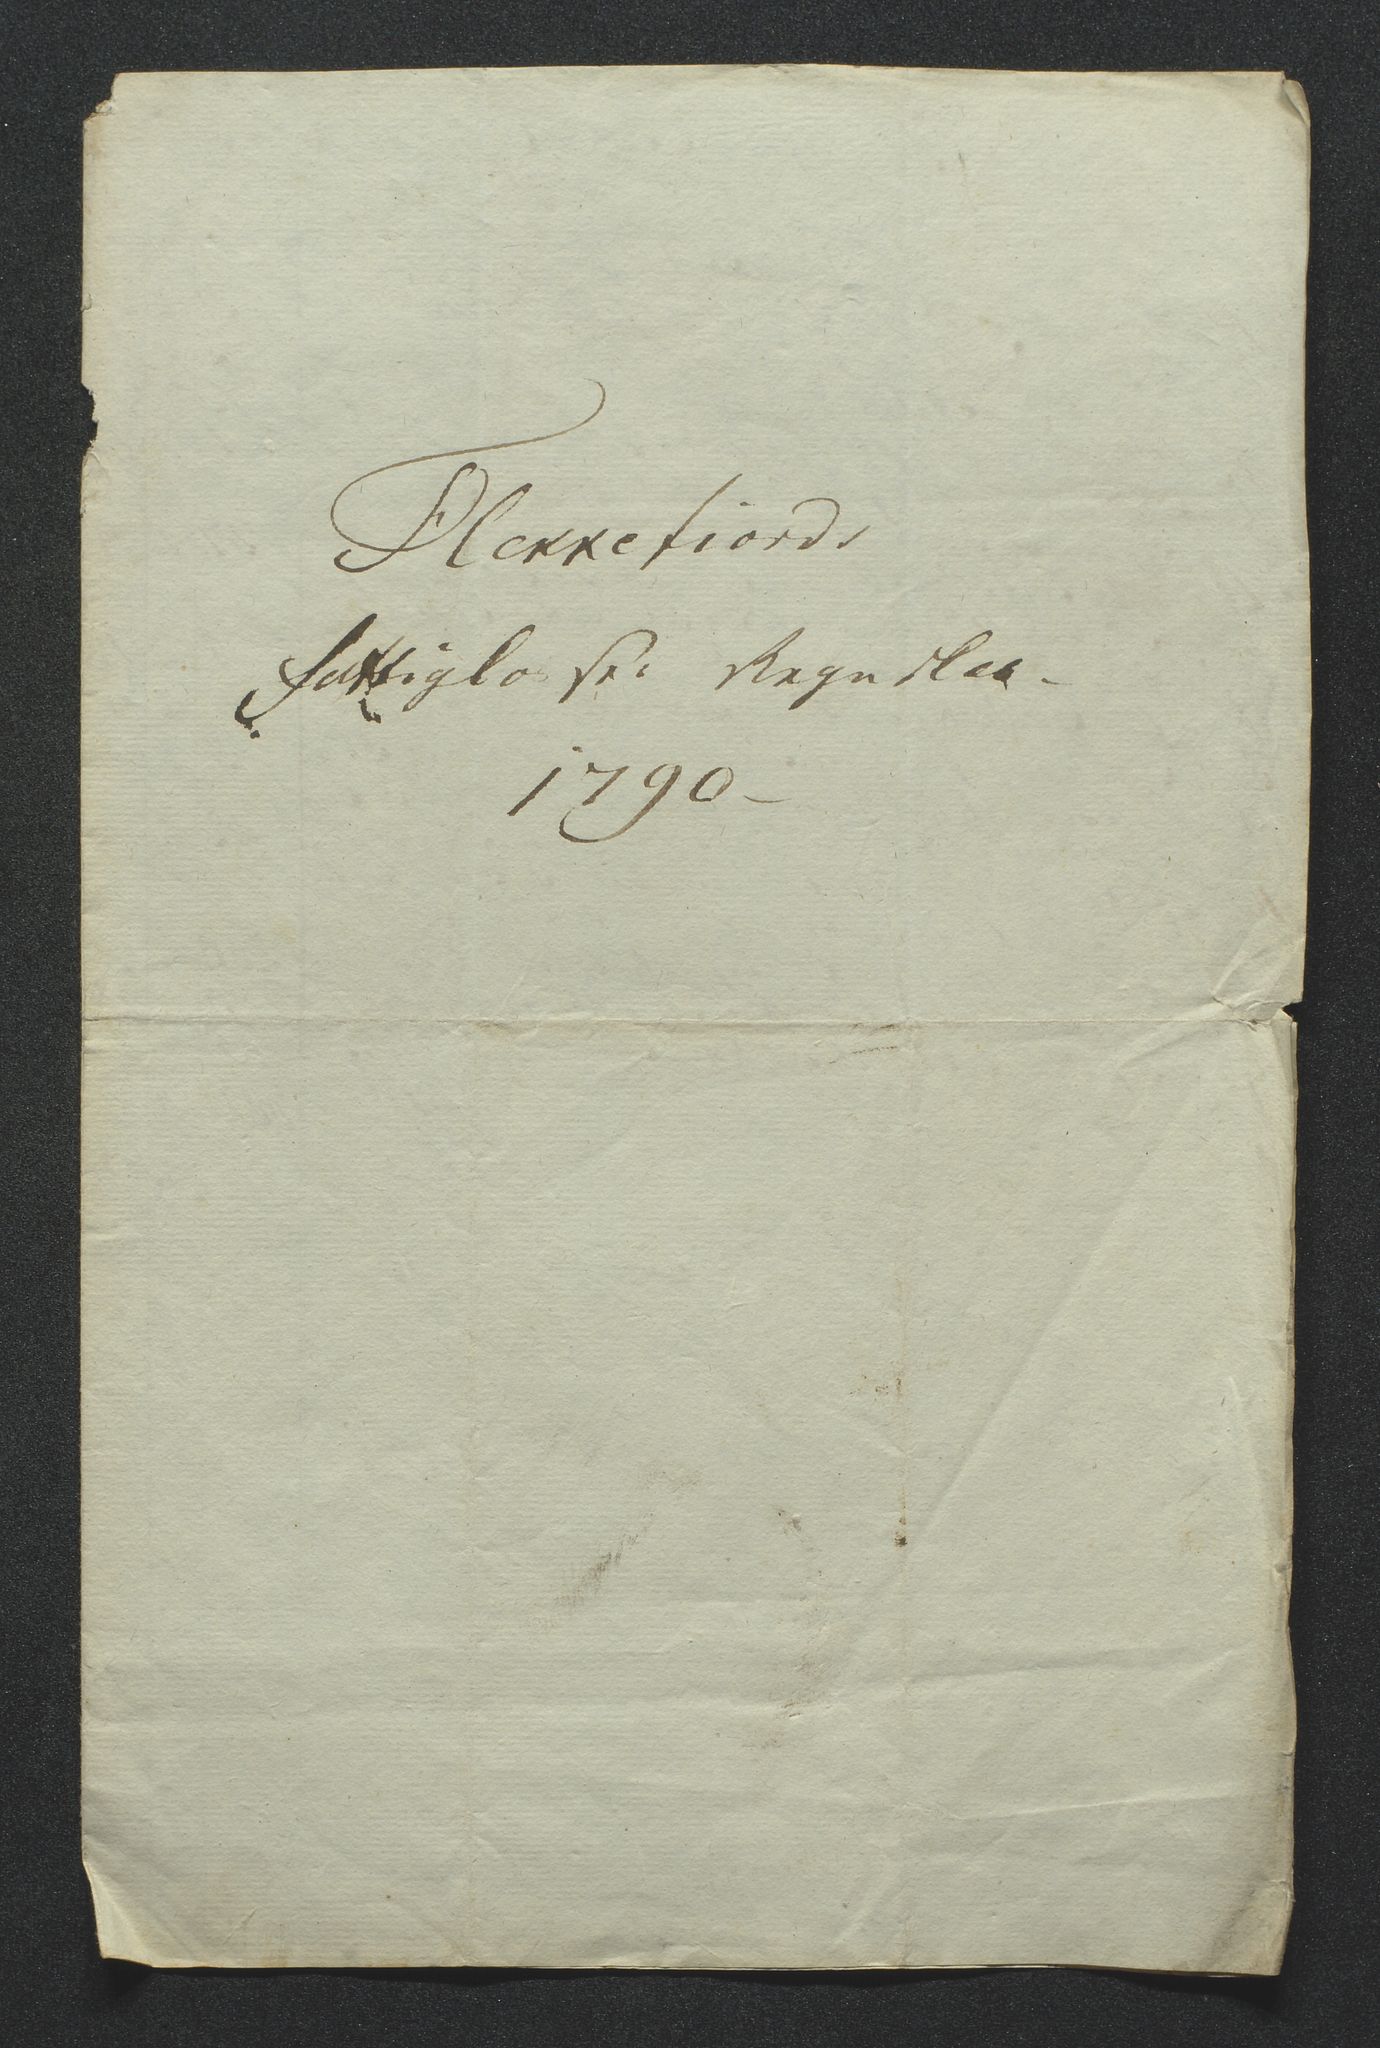 Flekkefiords
fattiglosses Regnskab
1790